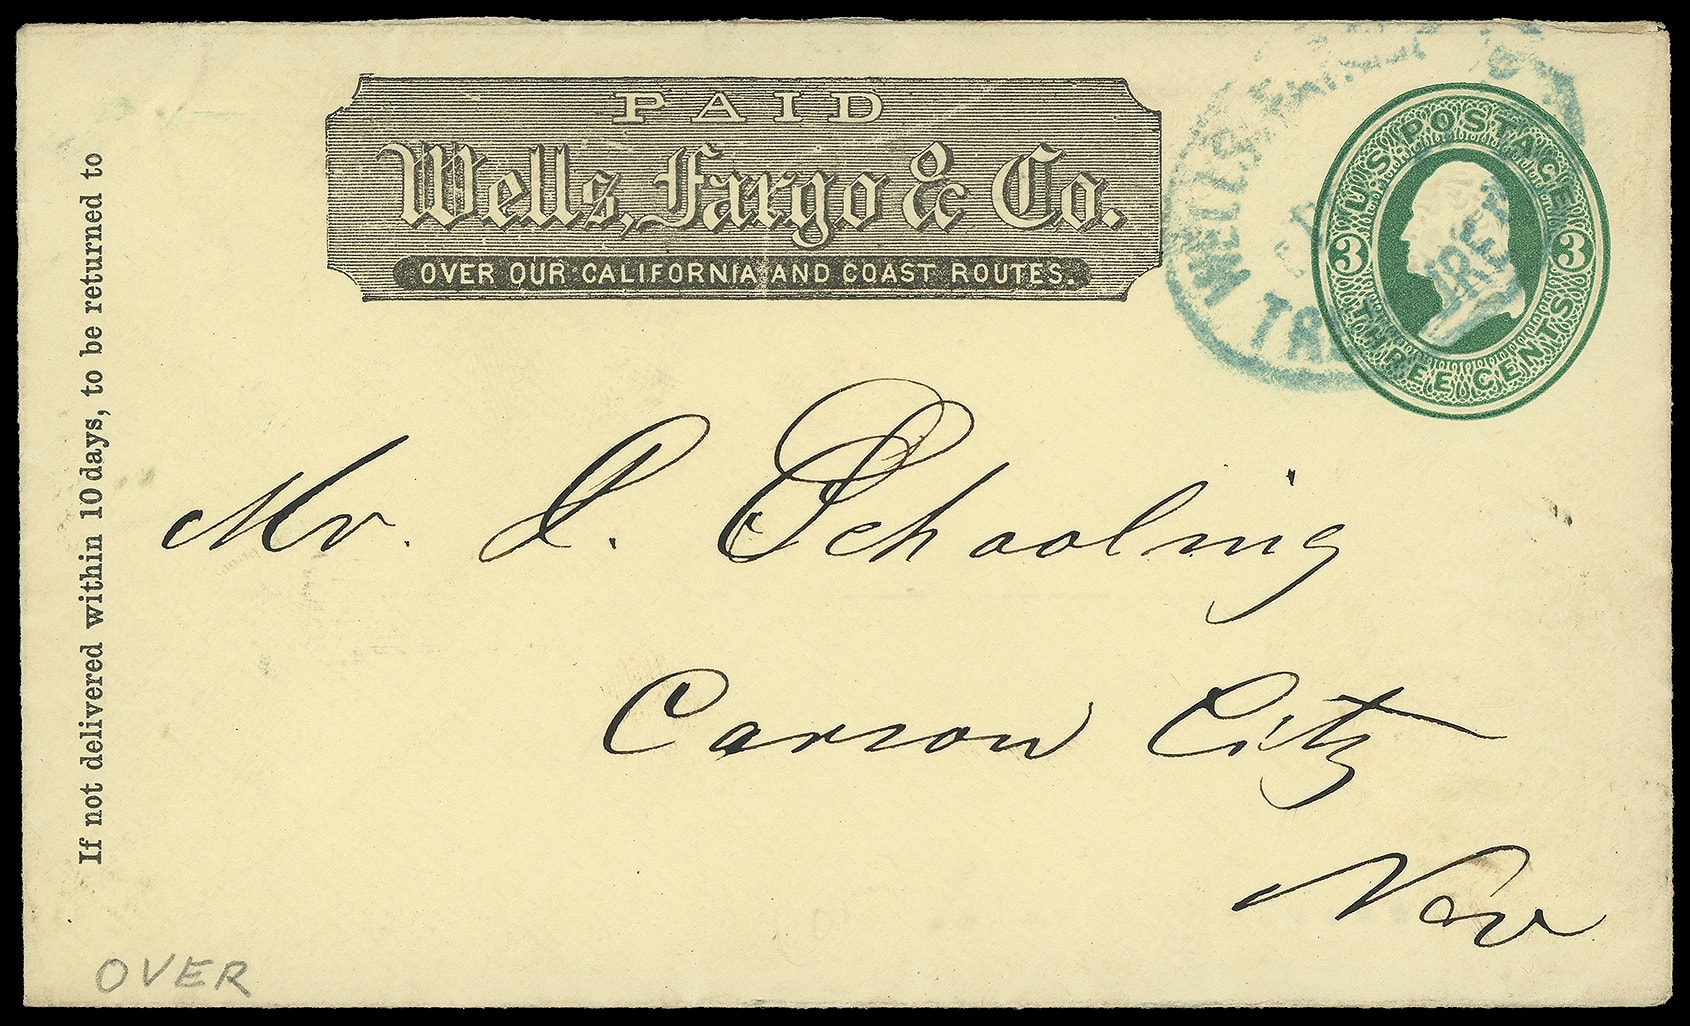 PAID
Wells, Fargo & Co.
OVER OUR CALIFORNIA AND COAST ROUTES.
WELLS, FARGO &
U.S. POSTAGE
3 3
THREE CENTS
If not delivered within 10 days, to be returned to
Mr. J. Schooling
Carson City
Nev
OVER